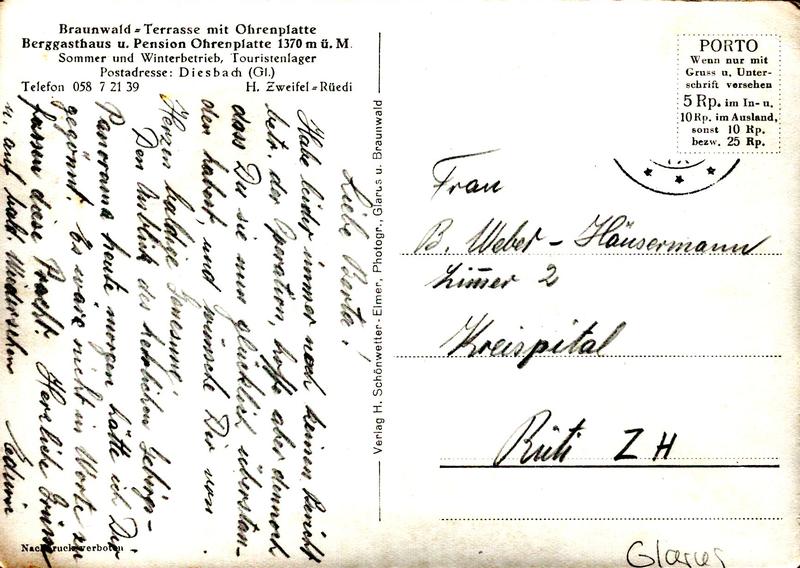 Braunwald = Terrasse mit Ohrenplatte
Berggasthaus u. Pension Ohrenplatte 1370 m ü. M.
Sommer und Winterbetrieb, Touristenlager
Postadresse: Diesbach (Gl.)
Telefon 058 7 21 39 H. Zweifel = Rüedi
Liebe Berta!
Habe leider immer noch keinen Bericht
betr. der Operation, hoffe aber dennoch
dass Du sie nun glücklich überstan-
den habest, und wünsche Dir von
Herzen baldige Genesung.
Den Anblick des herrlichen Gebirgs-
Panorama heute morgen hätte ich Dir
gegönnt. Es wäre nicht in Worte zu
fassen diese Pracht. Herzliche Grüsse
u. auf bald Wiedersehen
Nachdruck verboten
Verlag H. Schönwetter-Elmer, Photogr., Glarus u. Braunwald
PORTO
Wenn nur mit
Gruss u. Unter-
schrift versehen
5 Rp. im In- u.
10 Rp. im Ausland,
sonst 10 Rp.
bezw. 25 Rp.
Frau
B. Weber - Häusermann
Zimmer 2
Kreispital
Rüti ZH
Glarus